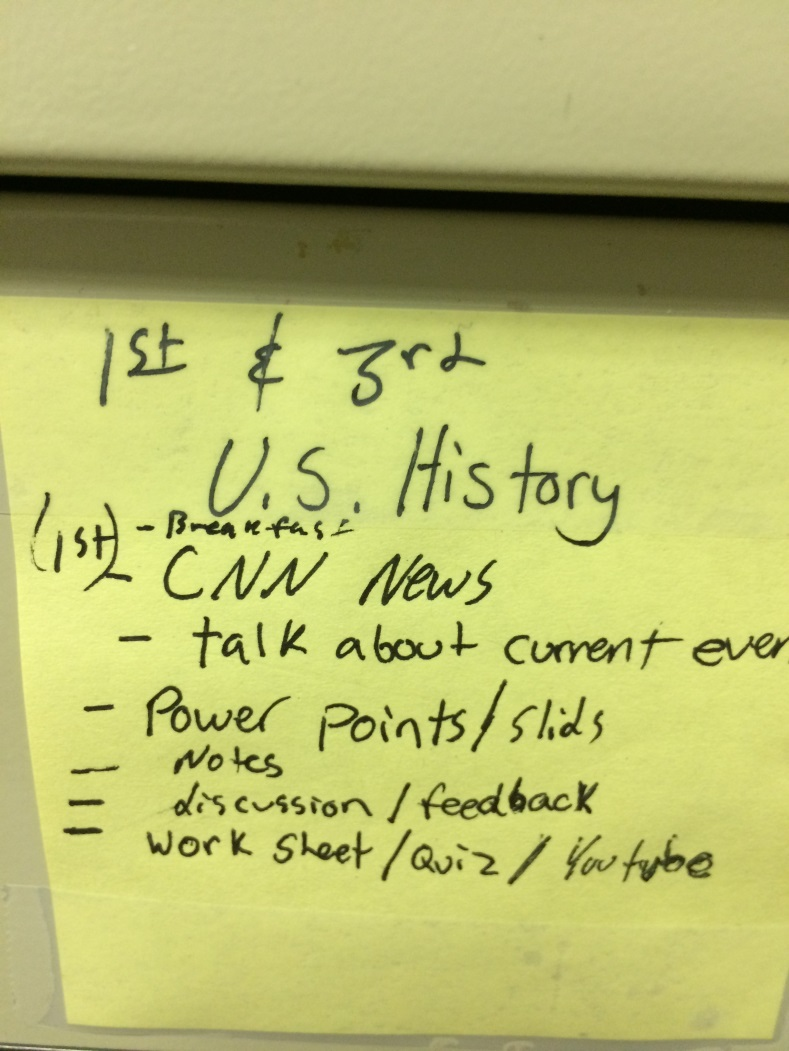 1st & 3rd
U.S. History
(1st) - Breakfast
- CNN News
- talk about current even
- Power Points/slids
- Notes
- discussion/feedback
- Work Sheet/Quiz/Youtube